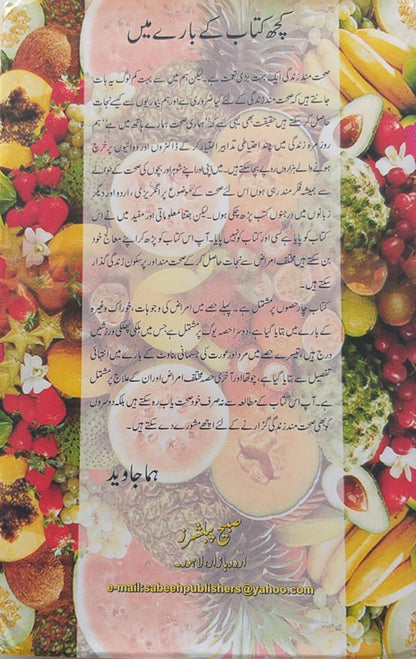 کچھ کتاب کے بارے میں
صحت مند زندگی ایک بہت بڑی نعمت ہے۔ لیکن ہم میں سے بہت کم لوگ یہ بات
جانتے ہیں کہ صحت مند زندگی کے لئے کیا ضروری ہے اور ہم بیماریوں سے کیسے نجات
حاصل کر سکتے ہیں حقیقت بھی یہی ہے کہ ”ہماری صحت ہمارے ہاتھ میں ہے“ ہم
روزمرہ زندگی میں چند احتیاطی تدابیر اختیار کر کے ڈاکٹروں اور دوائیوں پر خرچ
ہونے والے ہزاروں روپے بچا سکتے ہیں۔ میں اپنی اور اپنے شوہر اور بچوں کی صحت کے حوالے
سے ہمیشہ فکر مند رہی ہوں اس لئے صحت کے موضوع پر انگریزی، اردو اور دیگر
زبانوں میں درجنوں کتب پڑھ چکی ہوں۔ لیکن جتنا معلوماتی اور مفید میں نے اس
کتاب کو پایا ہے کسی اور کتاب کو نہیں پایا۔ آپ اس کتاب کو پڑھ کر اپنے معالج خود
بن سکتے ہیں مختلف امراض سے نجات حاصل کر کے صحت مند اور پرسکون زندگی گذار
سکتے ہیں۔
کتاب چار حصوں پر مشتمل ہے۔ پہلے حصے میں امراض کی وجوہات، خوراک وغیرہ
کے بارے میں بتایا گیا ہے، دوسرا حصہ یوگ پر مشتمل ہے جس میں ہلکی پھلکی ورزشیں
درج ہیں، تیسرے حصے میں مرد اور عورت کی جسمانی بناوٹ کے بارے میں انتہائی
تفصیل سے بتایا گیا ہے، چوتھا اور آخری حصہ مختلف امراض اور ان کے علاج پر مشتمل
ہے۔ آپ اس کتاب کے مطالعہ سے نہ صرف خود صحت یاب رہ سکتے ہیں بلکہ دوسروں
کو بھی صحت مند زندگی گزارنے کے لئے اچھے مشورے دے سکتے ہیں۔
ہما جاوید
صبیح پبلشرز
اردو بازار، لاہور
e-mail:sabeehpublishers@yahoo.com